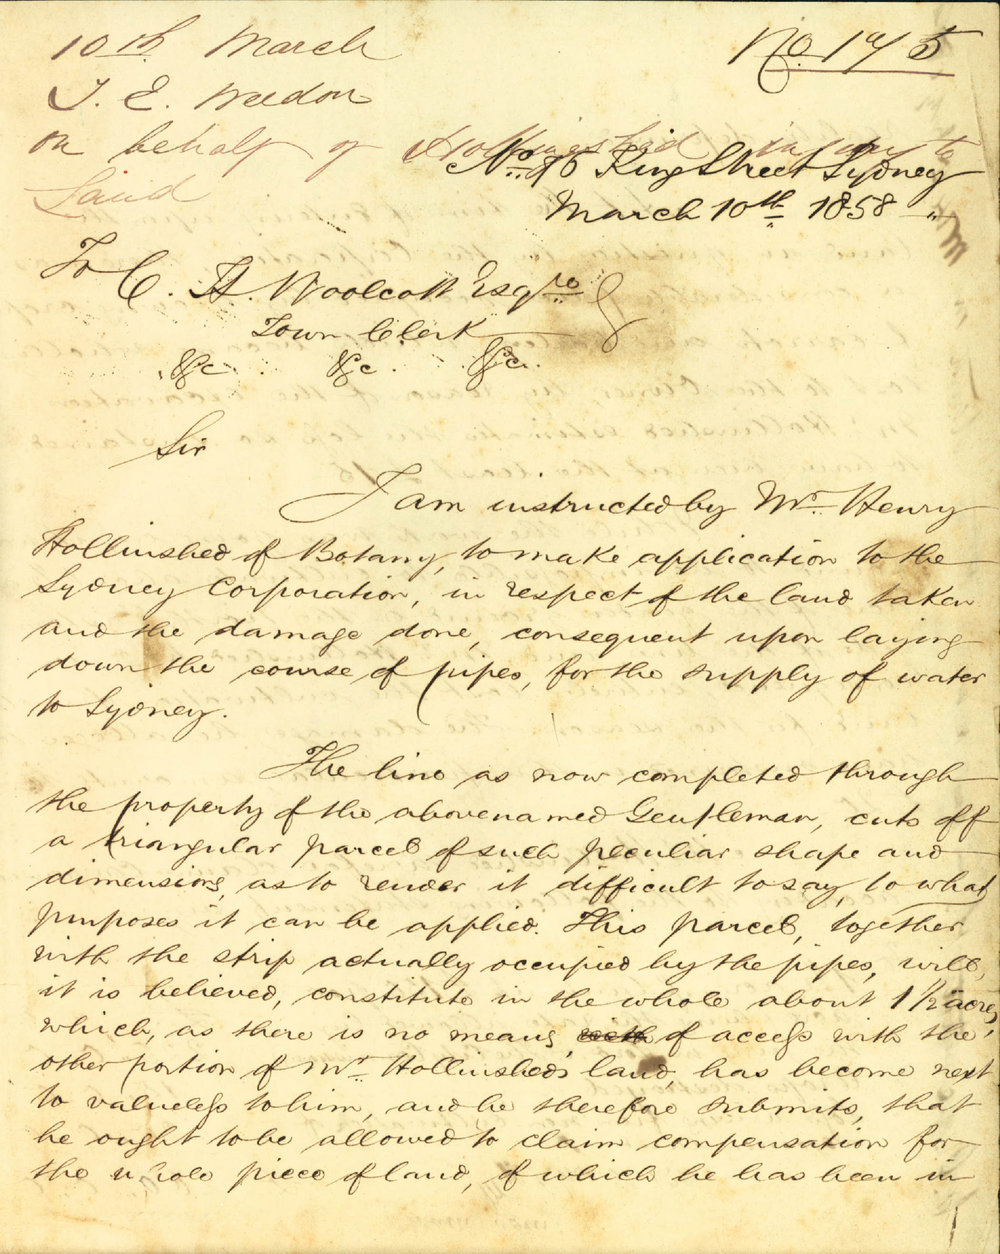 10th March
No. 175
T. E. Weedon
on behalf of Hollinshed in re to
Land
No. 95 King Street Sydney
March 10th 1858
To C. H. Woolcott Esqre
Town Clerk
&c &c &c.
Sir
I am instructed by Mr. Henry
Hollinshed of Botany, to make application to the
Sydney Corporation, in respect of the land taken
and the damage done, consequent upon laying
down the course of pipes, for the supply of water
to Sydney.
The line as now completed through
the property of the abovenamed Gentleman, cuts off
a triangular parcel of such peculiar shape and
dimensions, as to render it difficult to say, to what
purposes it can be applied. This parcel, together
with the strip actually occupied by the pipes, will,
it is believed, constitute in the whole about 1 1/2 acres,
which, as there is no means, with of access with the
other portion of Mr. Hollinshed's land, has become next
to valueless to him, and he therefore submits, that
he ought to be allowed to claim compensation for
the whole piece of land, of which he has been in